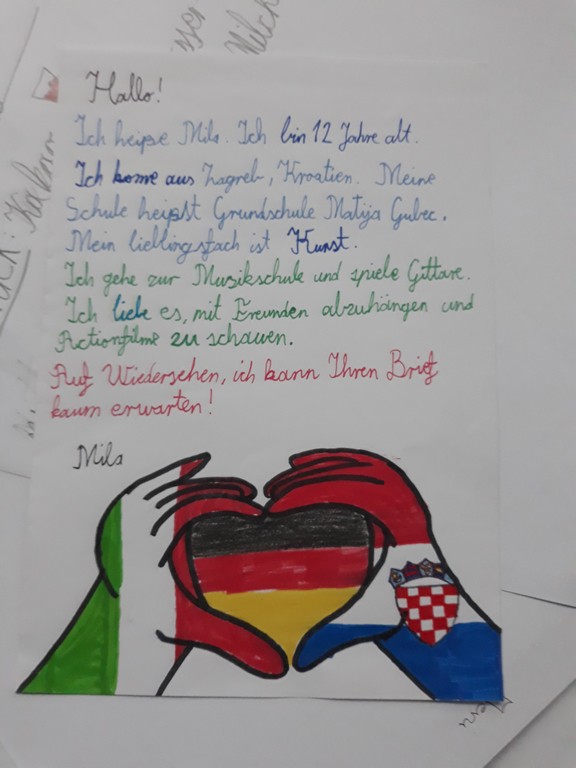 Hallo!
Ich heiße Mila. Ich bin 12 Jahre alt.
Ich kome aus Zagreb, Kroatien. Meine
Schule heißt Grundschule Matija Gubec.
Mein lieblingsfach ist Kunst.
Ich gehe zur Musikschule und spiele Gittare.
Ich liebe es, mit Freunden abzuhängen und
Actionfilme zu schauen.
Auf Wiedersehen, ich kann Ihren Brief
kaum erwarten!
Mila